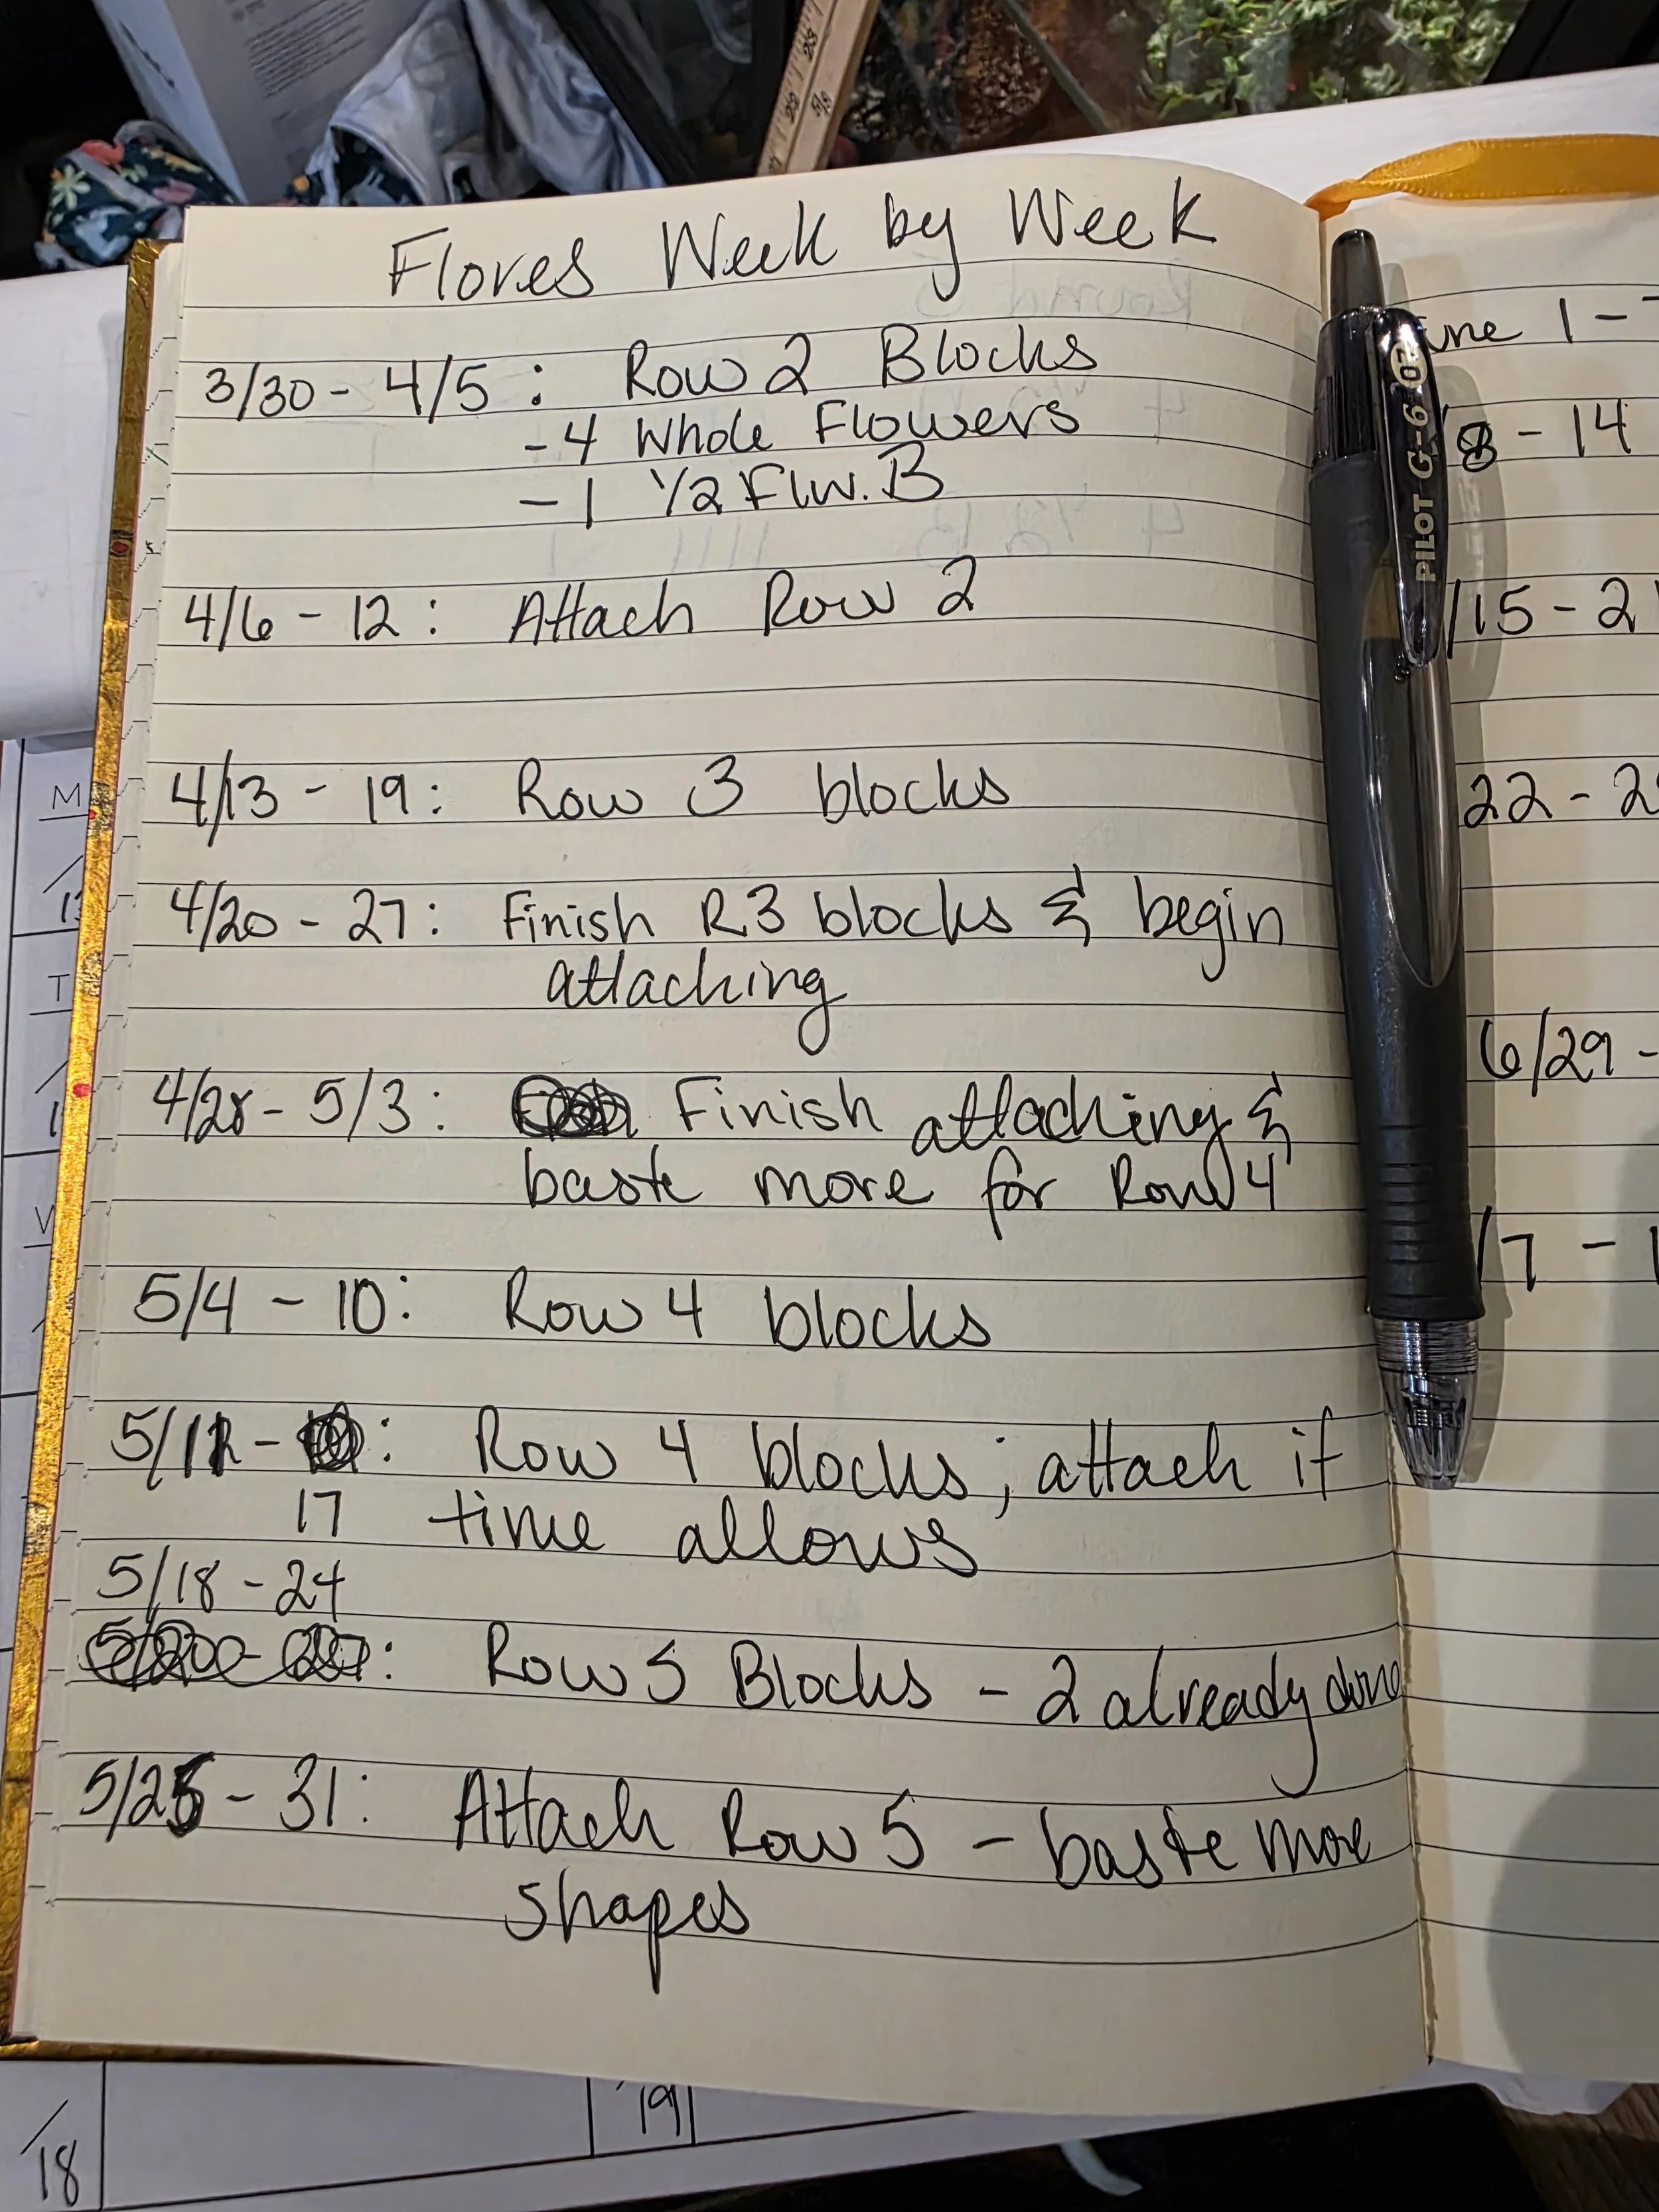 Flores Week by Week
3/30 - 4/5 : Row 2 Blocks
- 4 Whole Flowers
- 1 1/2 Flw. B
4/6 - 12 : Attach Row 2
4/13 - 19 : Row 3 blocks
4/20 - 27 : Finish R3 blocks & begin
attaching
4/28 - 5/3 : Finish attaching &
baste more for Row 4
5/4 - 10 : Row 4 blocks
5/11 - : Row 4 blocks ; attach if
17 time allows
5/18 - 24
: Row 5 Blocks - 2 already done
5/25 - 31 : Attach Row 5 - baste more
shapes
une 1 -
/8 - 14
/15 - 2
22 - 2
6/29 -
/7 - 1
PILOT G-6 02
M
T
W
18
19